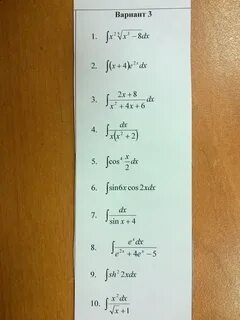 Вариант 3
1. ∫x² ⁵√(x³ − 8) dx
2. ∫(x + 4)e²ˣ dx
3. ∫ (2x + 8)/(x² + 4x + 6) dx
4. ∫ dx/(x(x² + 2))
5. ∫cos⁴ (x/2) dx
6. ∫sin6x cos 2xdx
7. ∫ dx/(sin x + 4)
8. ∫ eˣ dx/(e²ˣ + 4eˣ − 5)
9. ∫sh² 2xdx
10. ∫ x² dx/(√x + 1)